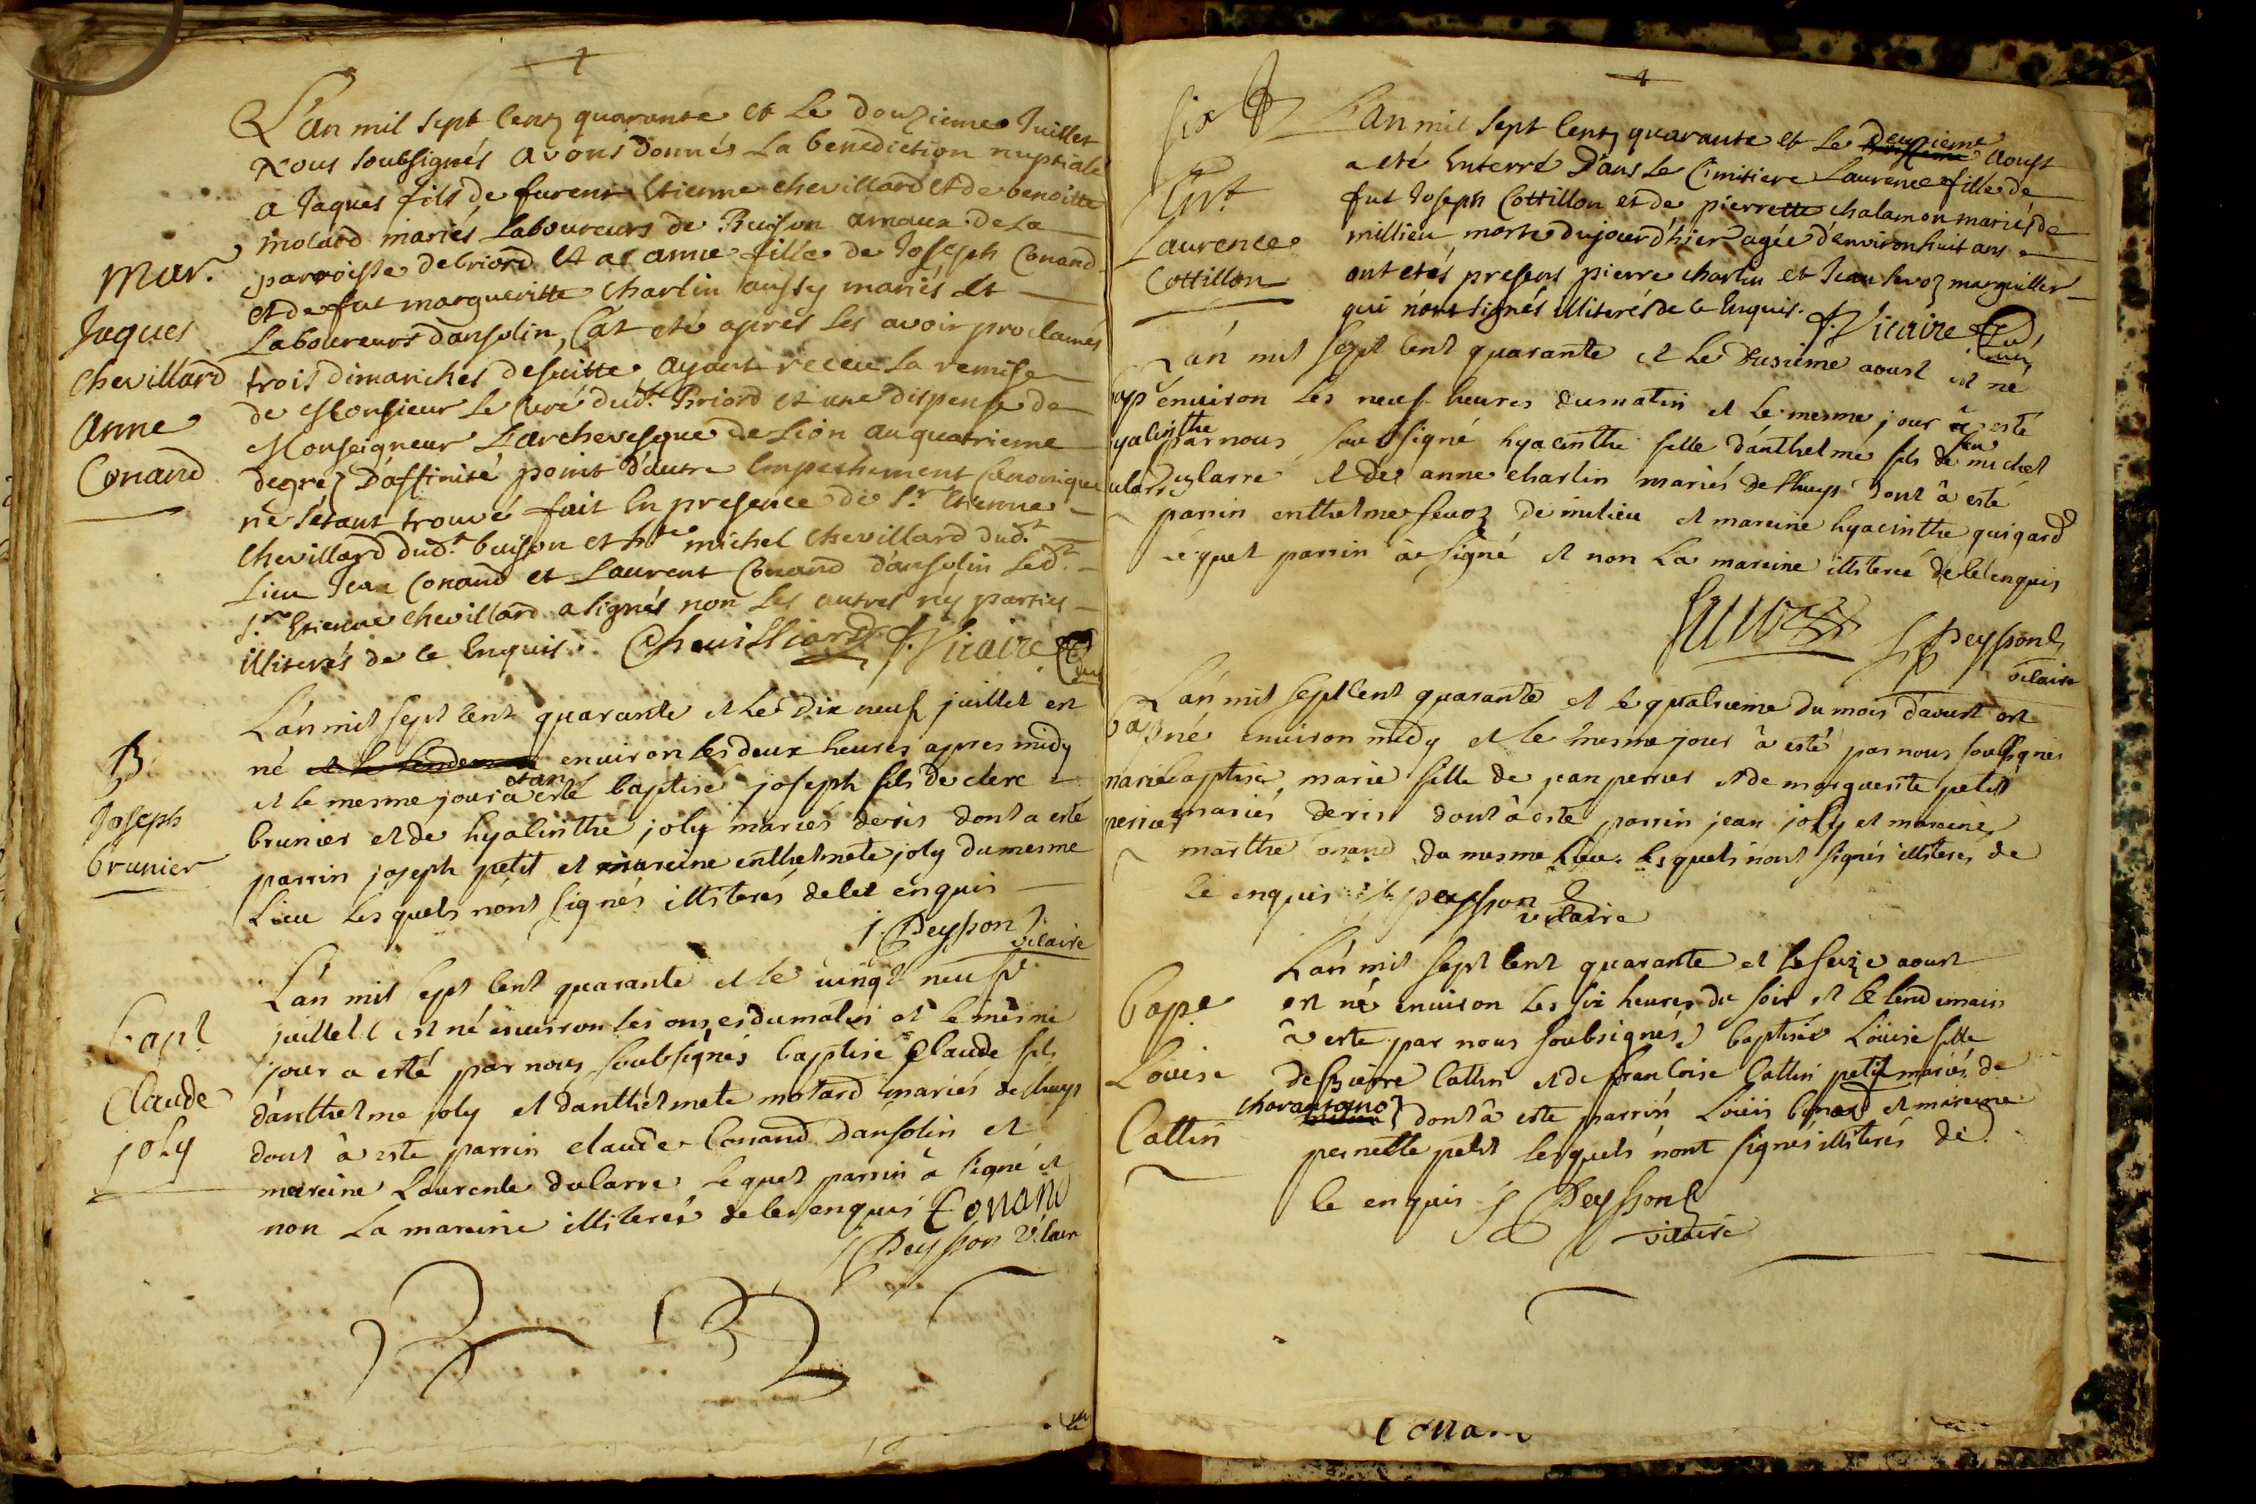 L'an mil sept Centz quarante et Le douzieme Juillet
Nous soubsignés avons donnés La benediction nuptiale
a Jaques fils de furent Etienne chevillard et de benoitte
molard mariés Laboureurs de Buison amaux de La
parroisse de briord et a anne fille de Joseph Conand
et de fut margueritte Charlin aussy mariés et
Laboureurs dansolin, Cat eté aprés Les avoir proclamés
trois dimanches de suitte ayant receu La remise
de Monsieur Le Curé dud.t Briord et une dispense de
Monseigneur Larchevesque de Lion au quatrieme
degrez D'affinité point d'autre Empechement Canonique
ne sétant trouvé fait En presence de S.r Etienne
Chevillard dud.t buison et h.te michel Chevillard dud.t
Lieu Jean Conand et Laurent Conand d'ansolin Led.t
S.r Etienne chevillard a signés non Les autres ny parties
illiterés de ce Enquis. Chevilliard J. Vicaire
Mar.
Jaques
chevillard
Anne
Conand
L'an mil sept cent quarante et Le Dix neuf juillet est
né et le lendemain environ les deux heures apres midy
et le mesme jour a esté baptisé joseph fils de clere
brunier et de hyacinthe joly mariés de ris dont a esté
parrin joseph petit et mareine enthelmete joly du mesme
Lieu Lesquels n'ont signés illiterés de ce enquis
J. Peysson vicaire
B.
Joseph
brunier
L'an mil sept cent quarante et le vingt neuf
juillet est né environ les onzes du matin et le mesme
jour a esté par nous soubsignés baptisé Claude fils
danthelme joly et danthelmete molard mariés de lhuys
dont à este parrin claude Conand Dansolin et
mareine Laurente dularre Lequel parrin à signé et
non La mareine illiterés de ce enquis Conand
J Peysson vicaire
bapt
Claude
joly
six
L'an mil sept Centz quarante et Le deuxieme Aoust
a eté Enterré Dans Le Cimitiere Laurence fille de
fut Joseph Cottillon et de pierrette chalamon mariés de
millieu morte du jour d'hier agée d'environ huit ans
ont etés presens pierre charlin et Jean sevoz marguiller
qui n'ont signés illiterés de ce Enquis. J. Vicaire
Ent.t
Laurence
Cottillon
L'an mil sept cent quarante et Le deusiéme aoust est né
environ Les neuf heures du matin et le mesme jour à esté
par nous soubsigné hyacinthe fille d'anthelme fils de feu michel
dularre et de anne charlin mariés de lhuys dont à este
parrin enthelme sevoz de milieu et mareine hyacinthe guigard
Lequel parrin à signé et non La mareine illiterée de ce enquis
Sevoz
J Peysson
vicaire
bap
hyacinthe
dularre
L'an mil sept cent quarante et le quatrieme du mois d'aoust est
né environ midy et le mesme jour à esté par nous soussignés
baptisée marie fille de jean perrier et de marguerite petit
mariés de ris dont à este parrin jean joly et mareine
marthe Conand du mesme Lieu Lesquels n'ont signés illiterés de
ce enquis J Peysson
vicaire
bap
marie
perrier
L'an mil sept cent quarante et le seize aoust
est né environ les six heures du soir et le lendemain
à este par nous soubsignés baptisée Louise fille
de pierre Cattin et de francoise Cattin petit mariés de
Charansonoz dont à este parrin Loüis bonard et mareine
pernette petit Lesquels n'ont signés illiterés de
ce enquis J Peysson
vicaire
bape
Louise
Cattin
Conan